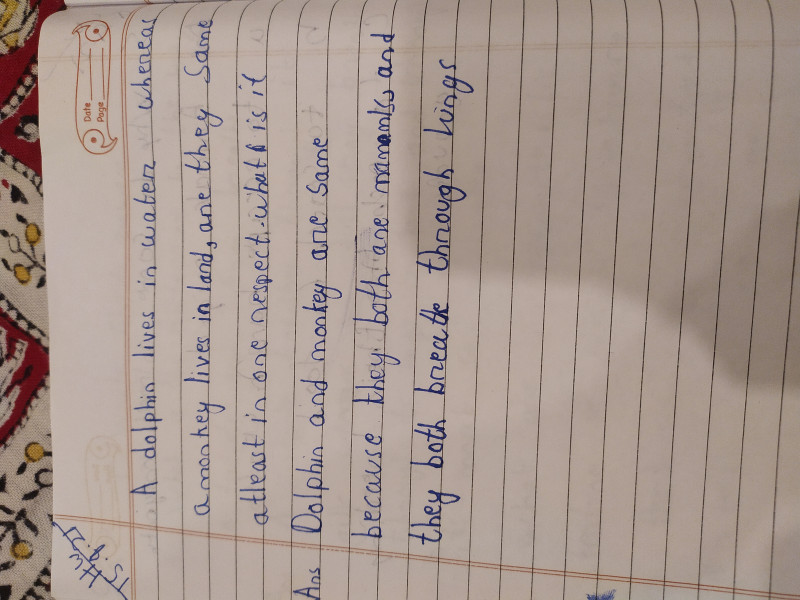 Date
Page
HW
A dolphin lives in water whereas
a monkey lives in land, are they same
atleast in one respect. what is it
Ans Dolphin and monkey are same
because they both are and
they both breath through lungs